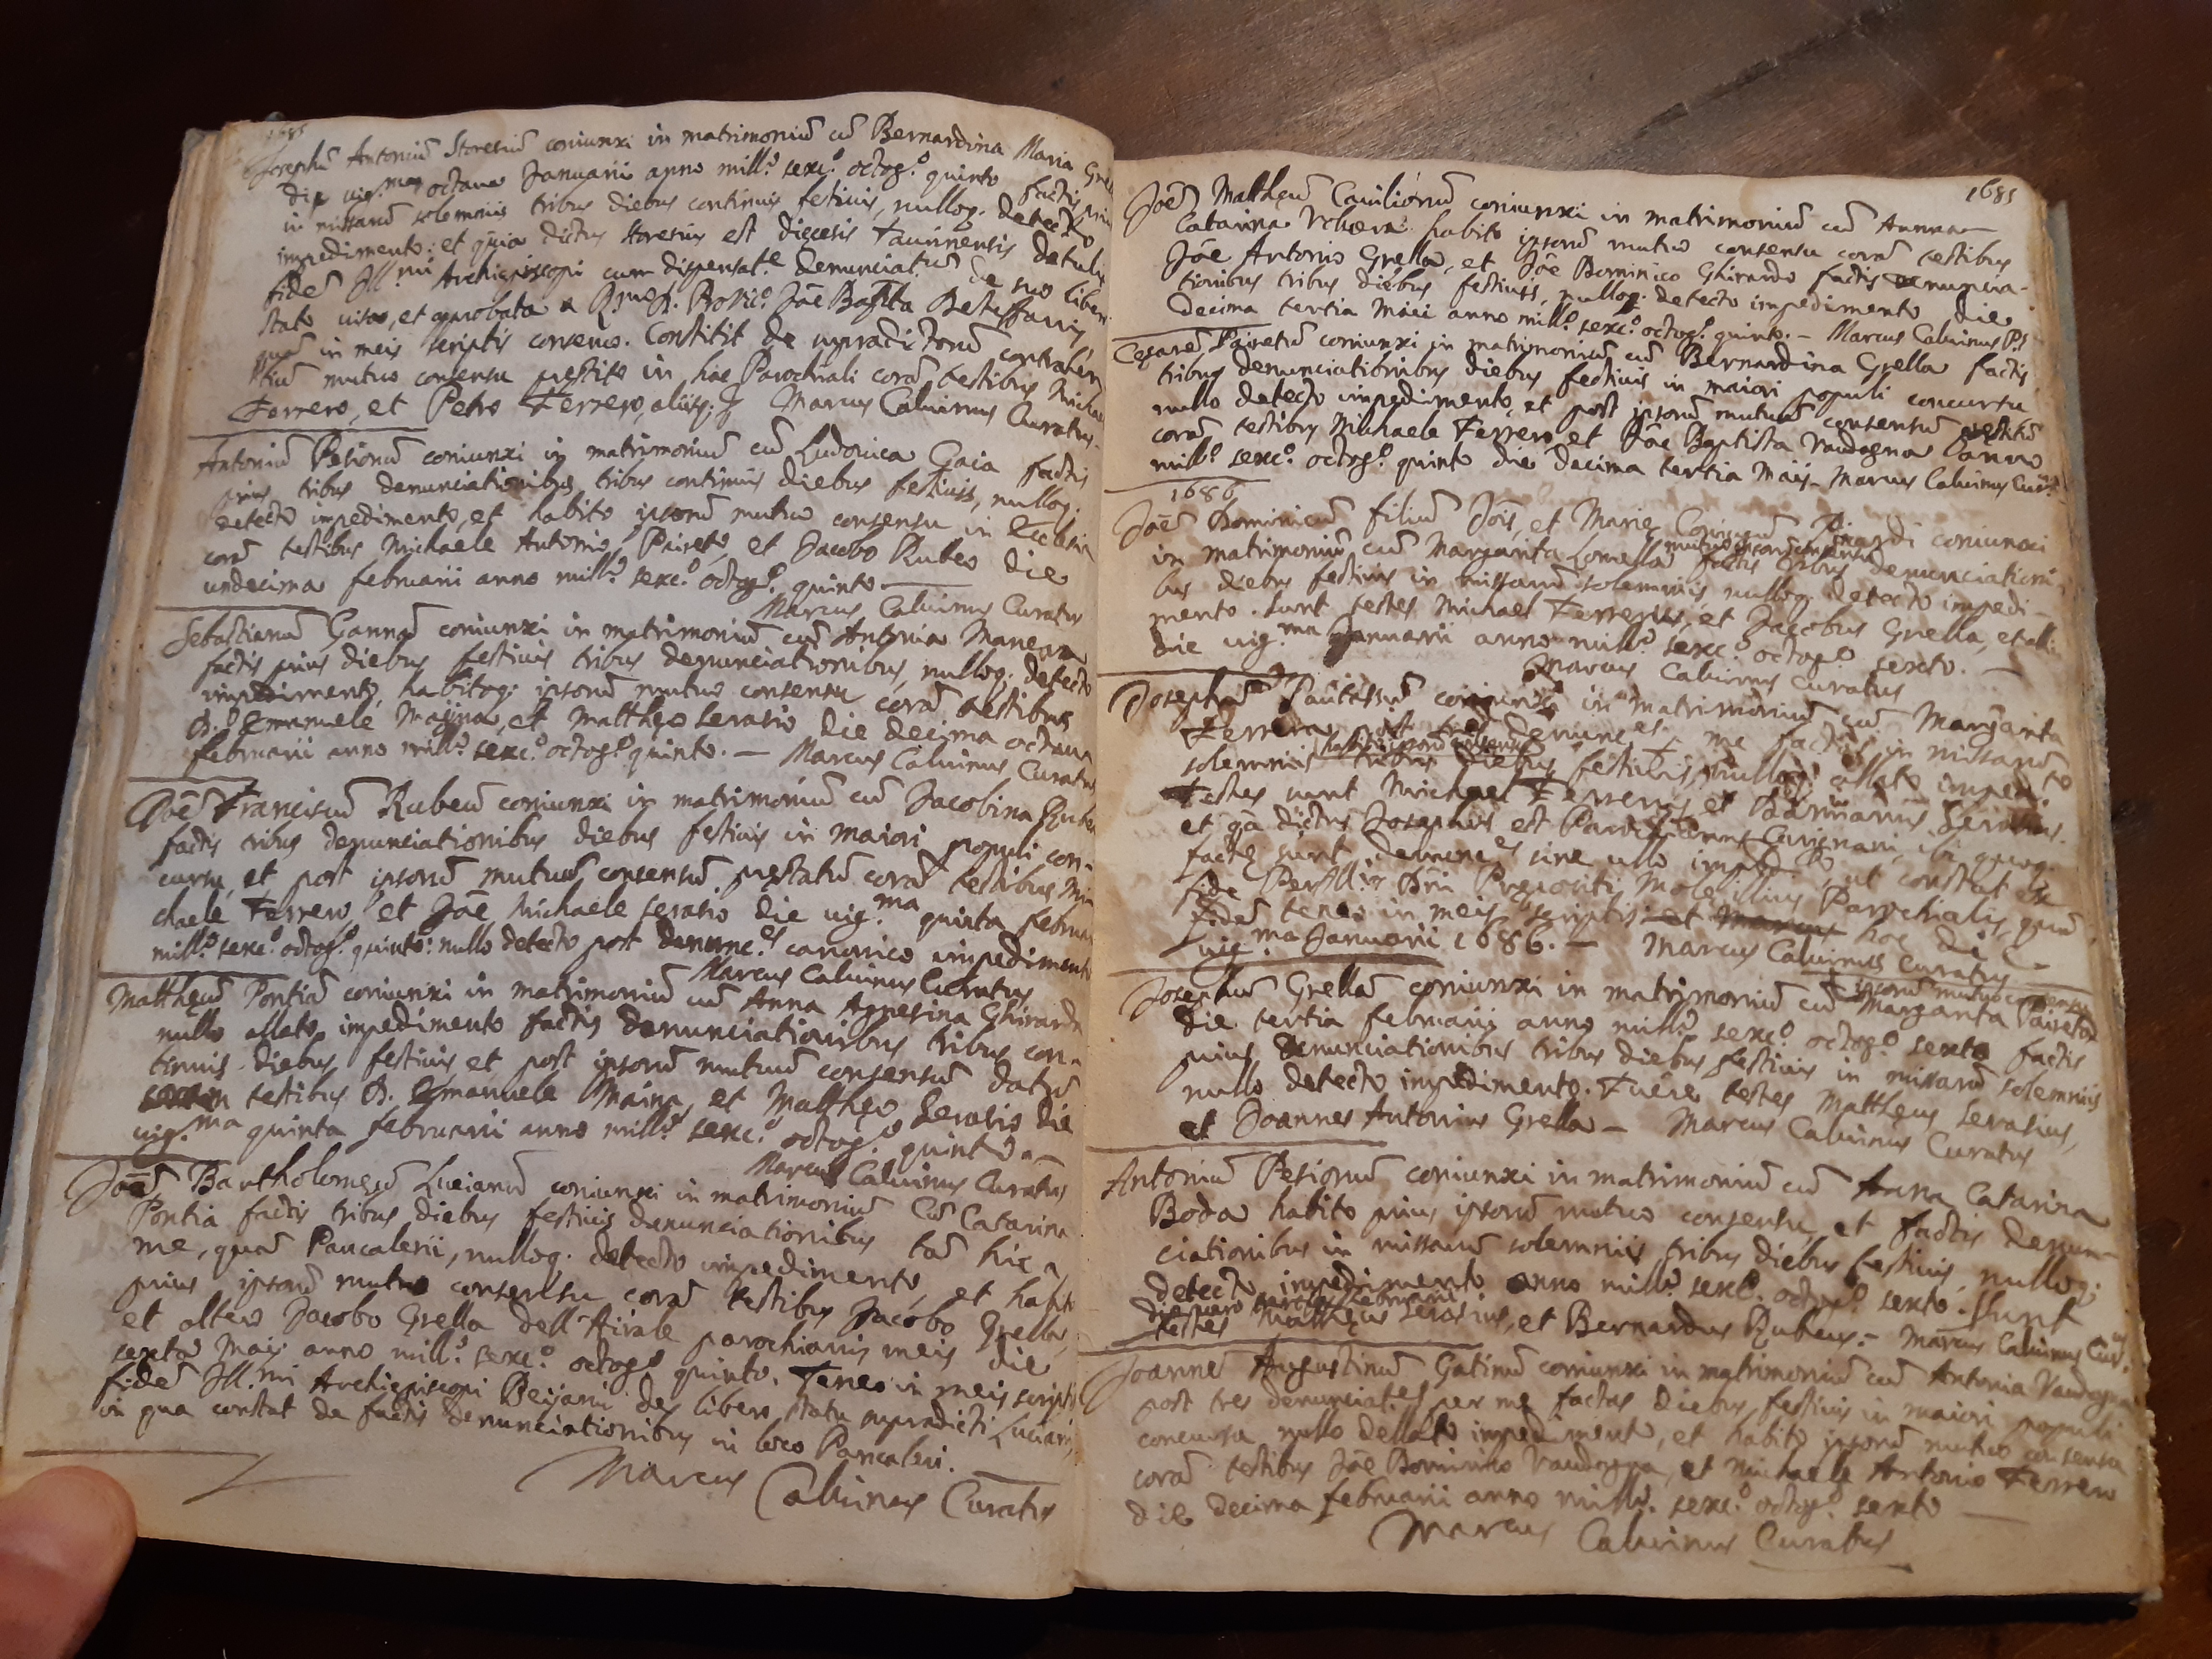 1685
Josephū Antoniū Storesiū coniunxi in matrimoniū cū Bernardina Maria
die vig.ma octava Januarii anno mill.o sexc.o octog.o quinto factis
in missarū solemniis tribus diebus continuis festivis, nulloq. detecto
impedimento: et quia dictus Storesius est diecesis Taurinensis
fidē Ill.mi Archiepiscopi cum dispensat.e denunciat.ū de suo liberi
statu visa, et approbata a Joē Bapta
quā in meis scriptis conservo. Constitit de supradictorū contrahen
tiū mutuo consensu prestito in hac Parochiali corā testibus Michae
Ferrero, et Petro Ferrero, aliisq. Marcus Calvinus Curatus.
Antoniū Pesionū coniunxi in matrimoniū cū Ludovica Gaia factis
prius tribus denunciationibus tribus continuis diebus festivis, nulloq.
detecto impedimento, et habito ipsorū mutuo consensu in Ecclesia
corā testibus Michaele Antonio Paireto, et Jacobo Rubeo die
undecima februarii anno mill.o sexc.o octog.o quinto
Marcus Calvinus Curatus
Sebastianū coniunxi in matrimoniū cū Antonia
factis prius diebus festivis tribus denunciationibus, nulloq. detecto
impedimento, habitoq. ipsorū mutuo consensu corā testibus
D. Emanuele Majna, et Mattheo Serasio die decima octava
februarii anno mill.o sexc.o octog.o quinto. – Marcus Calvinus Curatus
Joē Franciscū Rubeū coniunxi in matrimoniū cū Jacobina
factis tribus denunciationibus diebus festivis in maiori populi con-
cursu, et post ipsorū mutuū consensū prestatū corā testibus Mi
chaele Ferrero, et Joē Michaele Serasio die vig.ma quinta februar
mill.o sexc.o octog.o quinto: nullo detecto post denunc.es canonico impedimento
Marcus Calvinus Curatus
Mattheū Pontiā coniunxi in matrimoniū cū Anna Agnesina Ghirarda
nullo allato impedimento factis denunciationibus tribus con-
tinuis diebus festivis, et post ipsorū mutuū consensū datū
testibus D. Emanuele Maina, et Mattheo Serasio die
vig.ma quinta februarii anno mill.o sexc.o octog.o quinto –
Marcus Calvinus Curatus
Joēm Bartholomeū Lucianū coniunxi in matrimoniū cū Catarina
Pontia factis tribus diebus festivis denunciationibus tā hic a
me, quā Pancalerii, nulloq. detecto impedimento, et habito
prius ipsorū mutuo consensu corā testibus Jacobo Grella,
et altero Jacobo Grella dell'Airale parochianis meis die
sexta Maij anno mill.o sexc.o octog.o quinto. Teneo in meis scriptis
fidē Ill.mi Archiepiscopi Beijami de libero statu supradicti Luciani,
in qua constat de factis denunciationibus in loco Pancaleri.
Marcus Calvinus Curatus
1685
Joē Mattheū Cavilionū coniunxi in matrimoniū cū Anna
Catarina habito ipsorū mutuo consensu corā testibus
Joē Antonio Grella, et Joē Dominico Ghirardo factis denuncia-
tionibus tribus diebus festiviis, nulloq. detecto impedimento die
decima tertia Maii anno mill.o sexc.o octog.o quinto. – Marcus Calvinus
Cesarē Pairetū coniunxi in matrimoniū cū Bernardina Grella factis
tribus denunciationibus diebus festivis in maiori populi concursu
nullo detecto impedimento, et post ipsorū mutuū consensū prestitū
corā testibus Michaele Ferrero, et Joē Baptista Vaudagna anno
mill.o sexc.o octog.o quinto die decima tertia Maij – Marcus Calvinus Cur.
1686
Joēm Dominicū filiū Jois, et Marie coniunxi
in matrimoniū cū Margarita Lomella factis tribus denunciationi-
mutuo ipsorū consensu
bus diebus festivis in missarū solemniis nulloq. detecto impedi-
mento. Sunt testes Michael Ferrerius, et Jacobus Grella,
die vig.ma Januarii anno mill.o sexc.o octog.o sexto. –
Marcus Calvinus Curatus
Josephū coniunxi in matrimoniū cū Margarita
Ferrera post tres denunc.es a me factas in missarū
habito ipsorū consensu
solemniis tribus diebus festivis, nulloq. allato imped.to
testes sunt Michael Ferrerus, et Serasius.
et q̄a dictus Josephus est Carignani, ibi quoq.
facte sunt denunc.es sine ullo imped.to, ut constat ex
fide Perill.is Dn̄i Prepositi Parochialis, quā
fidē teneo in meis scriptis hac die
vig.ma Januarii 1686. – Marcus Calvinus Curatus
ipsorū mutuo consensu
Josephū Grellā coniunxi in matrimoniū cū Margarita Paireta
die tertia februarii anno mill.o sexc.o octog.o sexto factis
prius denunciationibus tribus diebus festivis in missarū solemniis
nullo detecto impedimento. Fuēre testes Mattheus Serasius,
et Joannes Antonius Grella – Marcus Calvinus Curatus
Antoniū Pesionū coniunxi in matrimoniū cū Anna Catarina
Boda habito prius ipsorū mutuo consensu, et factis denun-
ciationibus in missarū solemniis tribus diebus festivis, nulloq.
detecto impedimento anno mill.o sexc.o octog.o sexto. Sunt
testes Mattheus Serasius, et Bernardus Rubeus. – Marcus Calvinus Cur.
Joannē Augustinū Gatinū coniunxi in matrimoniū cū Antonia Vaudagna
post tres denunciat.es per me factas diebus festivis in maiori populi
concursu nullo dellato impedimento, et habito ipsorū mutuo consensu
corā testibus Joē Dominico Vaudagna, et Michaele Antonio Ferrero
die decima februarii anno mill.o sexc.o octog.o sexto
Marcus Calvinus Curatus